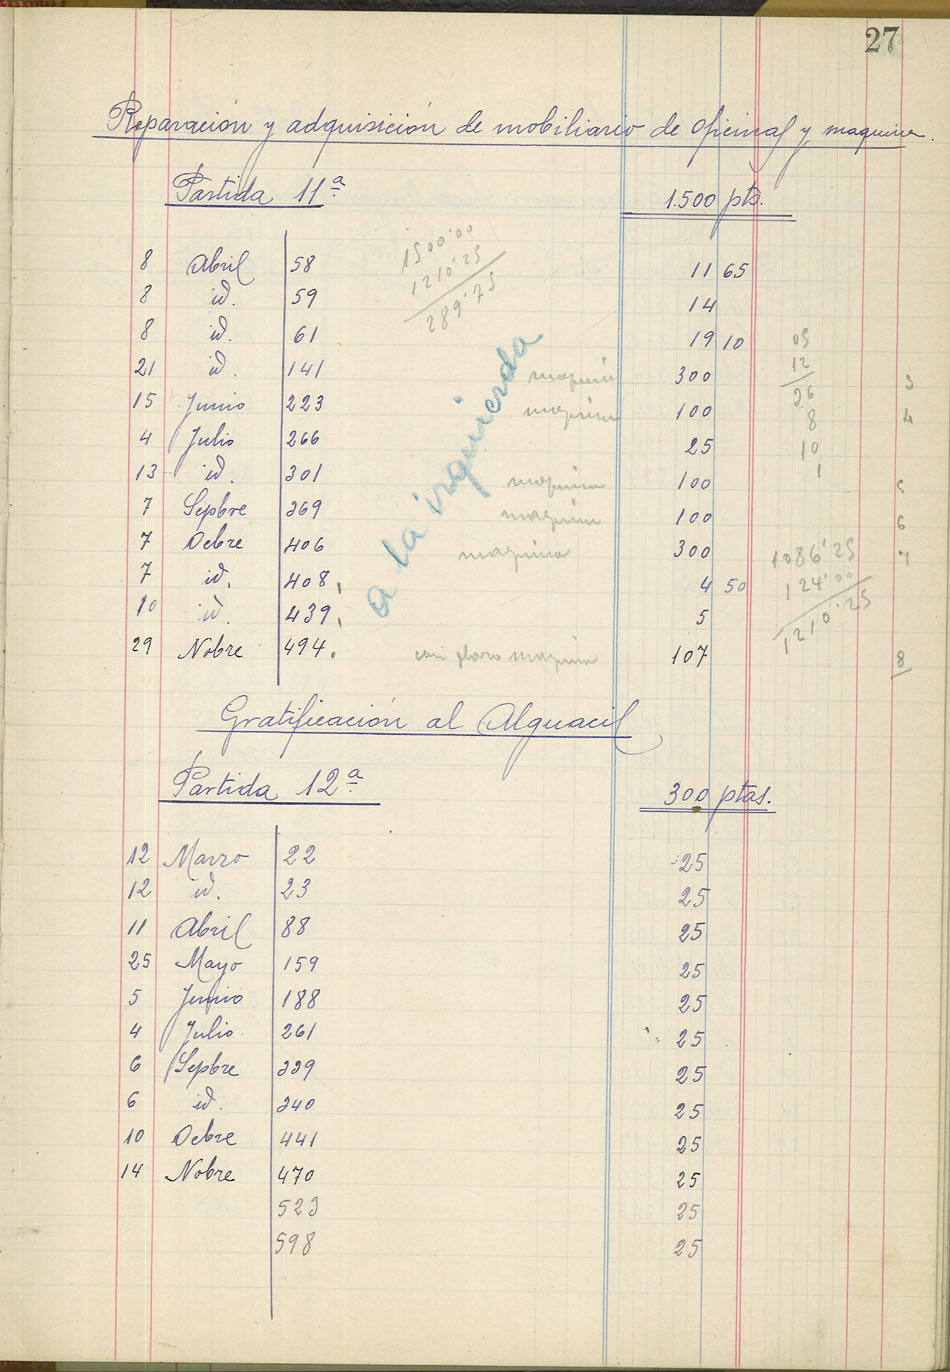 27
Reparación y adquisición de mobiliario de oficinas y maquina.
Partida 11ª 1.500 pts.
1500'00
1210'25
289'75
8 Abril 58 11 65
8 id. 59 14
8 id. 61 19 10
05
21 id. 141 maquina 300
12
26
3
15 Junio 223 maquina 100
8
4
4 Julio 266 25
10
1
13 id. 301 maquina 100
5
7 Sepbre 369 maquina 100
6
7 Ocbre 406 maquina 300
7
1086'25
124'00
1210'25
7 id. 408 4 50
10 id. 439 5
29 Nobre 494. maquina 107
8
a la izquierda
Gratificación al Alguacil
Partida 12ª 300 ptas.
12 Marzo 22 25
12 id. 23 25
11 Abril 88 25
25 Mayo 159 25
5 Junio 188 25
4 Julio 261 25
6 Sepbre 339 25
6 id. 340 25
10 Ocbre 441 25
14 Nobre 470 25
523 25
598 25